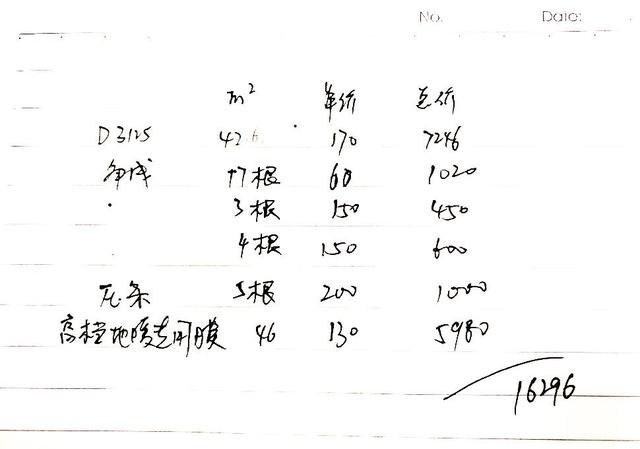 No. Date:
m² 单价 总价
D3125 42.6 170 7246
17根 60 1020
3根 150 450
4根 150 600
压条 5根 200 1000
高档地暖专用膜 46 130 5980
16296